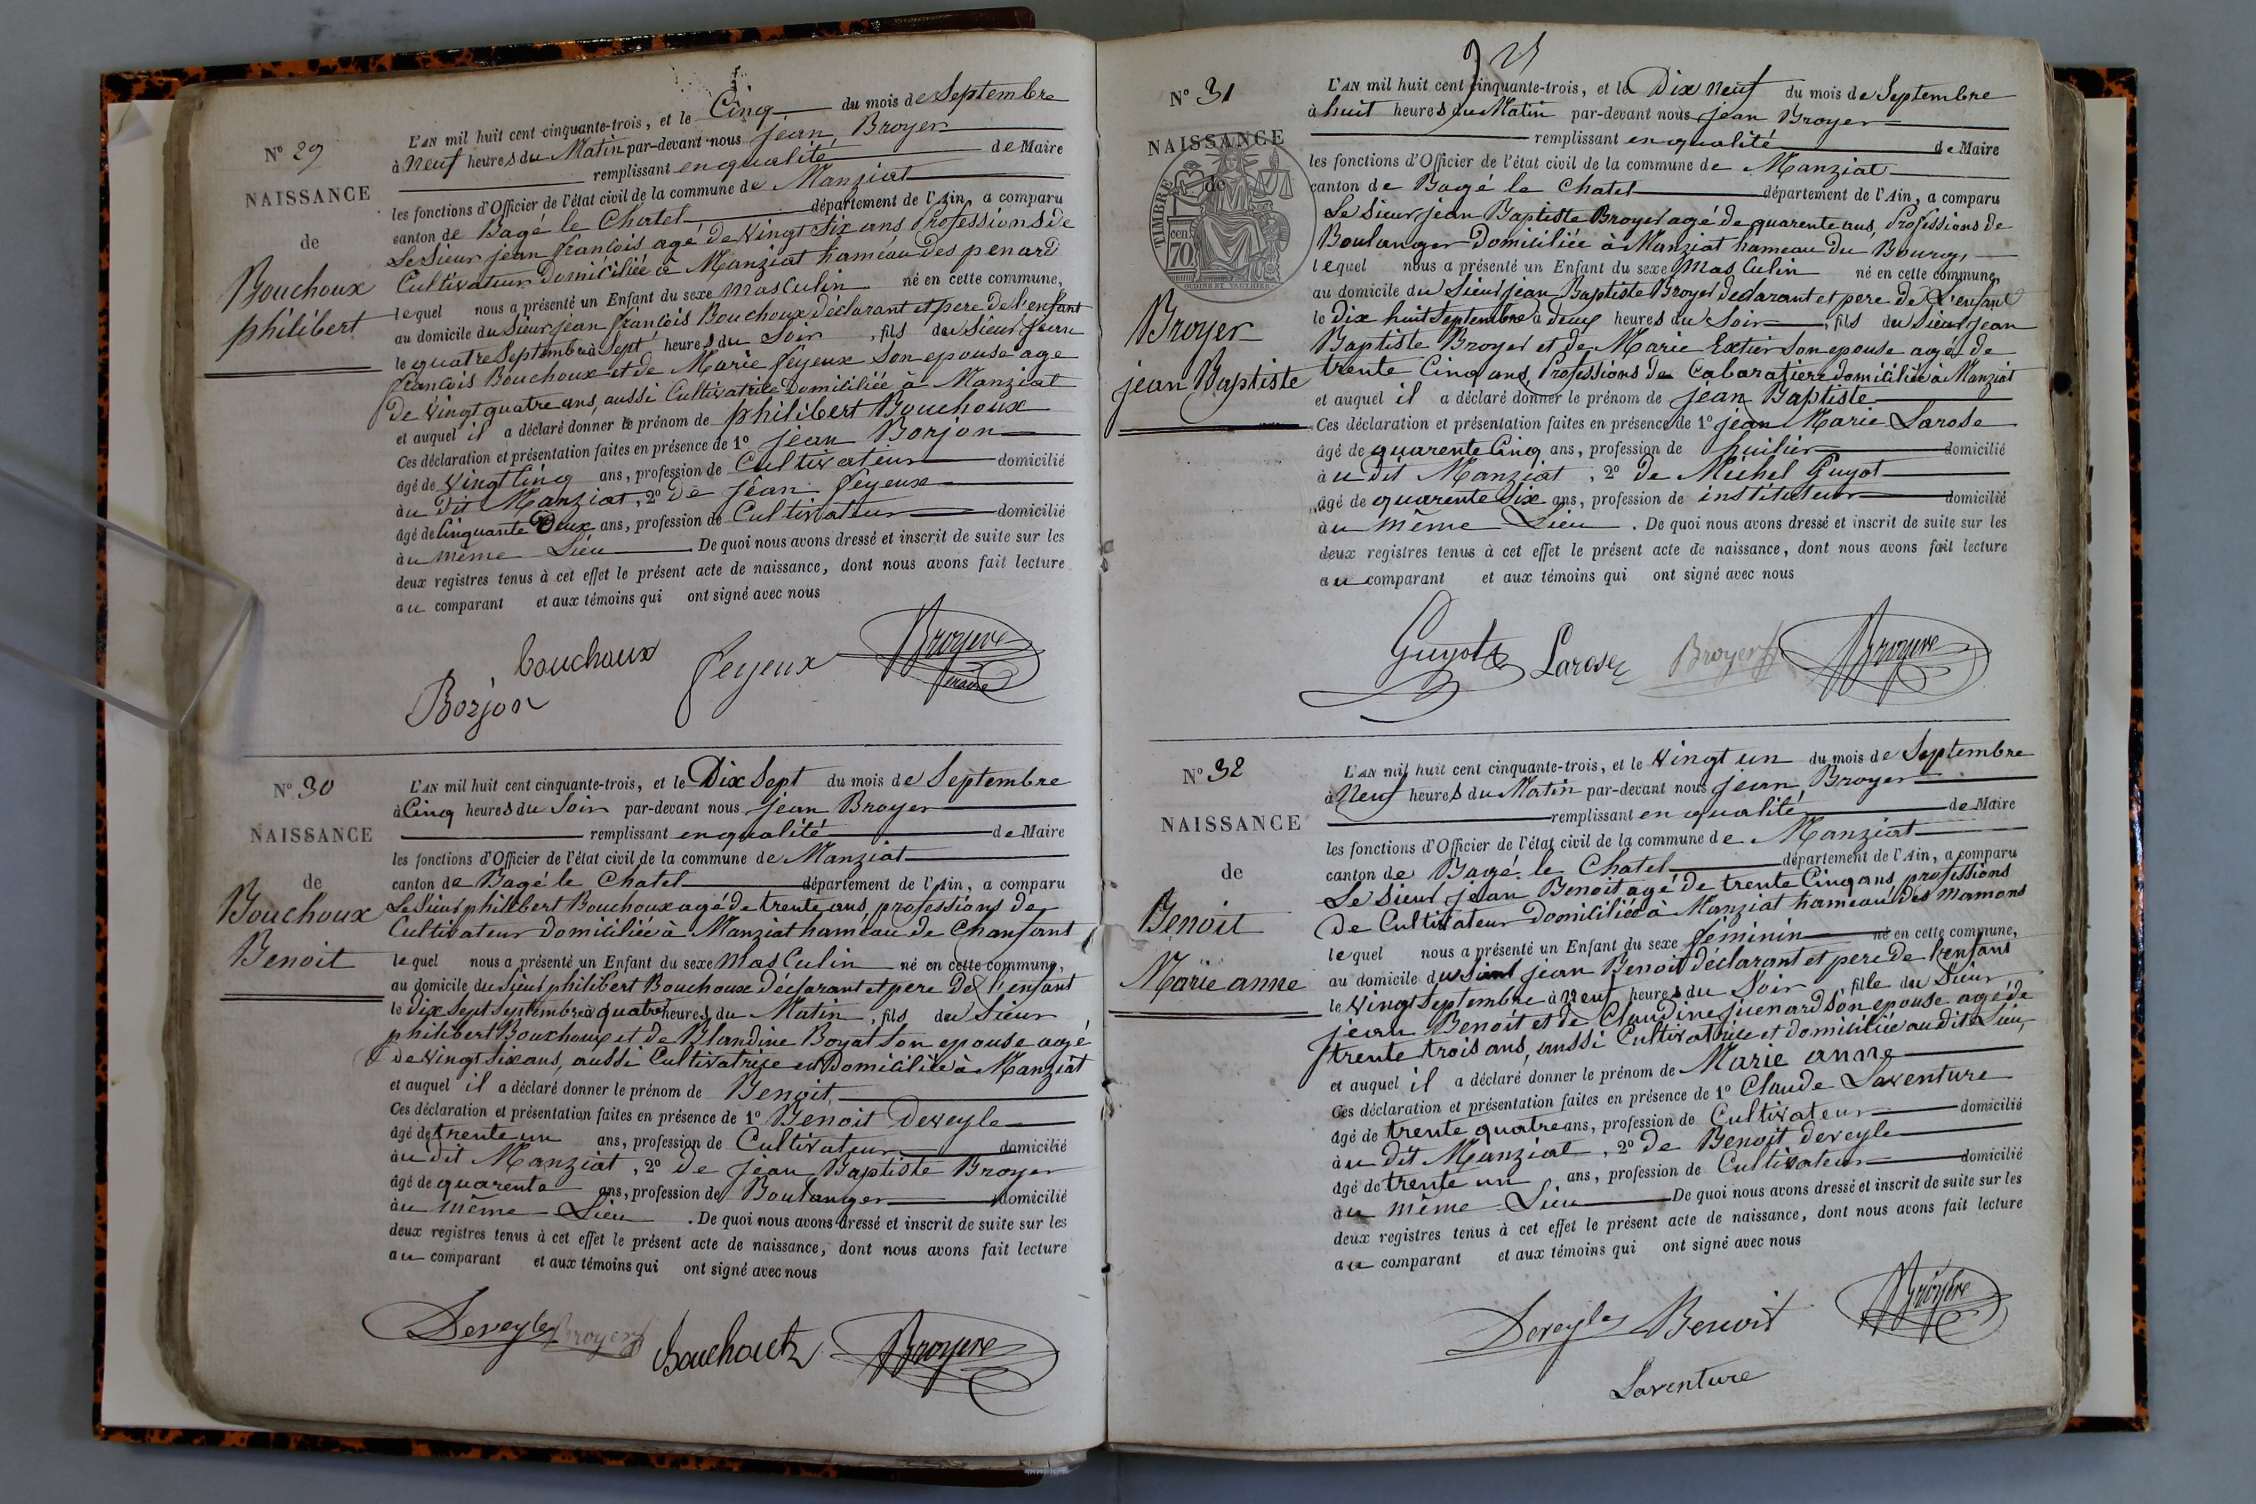 N° 29
NAISSANCE
de
Bouchoux
philibert
L'AN mil huit cent cinquante-trois, et le Cinq du mois de Septembre
à Neuf heures du Matin par-devant nous jean Broyer
remplissant en qualité de Maire
les fonctions d'Officier de l'état civil de la commune de Manziat
canton de Bagé le Chatel département de l'Ain, a comparu
Le Sieur jean françois agé de Vingt Six ans Professions de
Cultivateur Domiciliée à Manziat hameau Des penard
lequel nous a présenté un Enfant du sexe masculin né en cette commune,
au domicile du Sieur jean françois Bouchoux déclarant et pere De l'enfant
le quatre Septembre à Sept heures du Soir, fils du Sieur jean
francois Bouchoux et de Marie feyeux Son epouse age
De Vingt quatre ans, aussi Cultivatrice Domiciliée à Manziat
et auquel il a déclaré donner le prénom de philibert Bouchoux
Ces déclaration et présentation faites en présence de 1° jean Borjon
âgé de Vingt Cinq ans, profession de Cultivateur domicilié
àu dit Manziat, 2° de jean feyeux
âgé de Cinquante Deux ans, profession de Cultivateur domicilié
àu même Lieu. De quoi nous avons dressé et inscrit de suite sur les
deux registres tenus à cet effet le présent acte de naissance, dont nous avons fait lecture
au comparant et aux témoins qui ont signé avec nous
bouchoux feyeux Broyere
maire
Borjon
N° 30
NAISSANCE
de
Bouchoux
Benoit
L'AN mil huit cent cinquante-trois, et le Dix Sept du mois de Septembre
à Cinq heures du Soir par-devant nous jean Broyer
remplissant en qualité de Maire
les fonctions d'Officier de l'état civil de la commune de Manziat
canton de Bagé le Chatel département de l'Ain, a comparu
Le Sieur philibert Bouchoux agé de trente ans, professions de
Cultivateur domiciliée à Manziat hameau de Chanfant
lequel nous a présenté un Enfant du sexe Masculin né en cette commune,
au domicile du Sieur philibert Bouchoux declarant et pere de l'enfant
le Dix Sept Septembre à quatre heures du Matin, fils du Sieur
philibert Bouchoux et de Blandine Boyat Son epouse agé
de Vingt Six ans, aussi Cultivatrice et Domiciliée à Manziat
et auquel il a déclaré donner le prénom de Benoit
Ces déclaration et présentation faites en présence de 1° Benoit Deveyle
âgé de trente un ans, profession de Cultivateur domicilié
àu dit Manziat, 2° de jean Baptiste Broyer
âgé de quarente ans, profession de Boulanger domicilié
àu même Lieu. De quoi nous avons dressé et inscrit de suite sur les
deux registres tenus à cet effet le présent acte de naissance, dont nous avons fait lecture
au comparant et aux témoins qui ont signé avec nous
Deveyle Broyer Bouchoux Broyere
N° 31
NAISSANCE
de
TIMBRE
70 cen
Broyer
jean Baptiste
L'AN mil huit cent cinquante-trois, et le Dix neuf du mois de Septembre
à huit heures du Matin par-devant nous jean Broyer
remplissant en qualité de Maire
les fonctions d'Officier de l'état civil de la commune de Manziat
canton de Bagé le Chatel département de l'Ain, a comparu
Le Sieur jean Baptiste Broyer agé de quarente ans, Professions de
Boulanger Domiciliée à Manziat hameau du Bourg,
lequel nous a présenté un Enfant du sexe masculin né en cette commune,
au domicile du Sieur jean Baptiste Broyer declarant et pere de L'enfant
le dix huit Septembre à deux heures du Soir, fils du Sieur jean
Baptiste Broyer et de Marie Extier Son epouse agé de
trente Cinq ans, Professions de Cabaratiere domiciliée à Manziat
et auquel il a déclaré donner le prénom de jean Baptiste
Ces déclaration et présentation faites en présence de 1° jean Marie Larose
âgé de quarente Cinq ans, profession de huilier domicilié
àu dit Manziat, 2° de Michel Guyot
âgé de quarente Six ans, profession de instituteur domicilié
àu même Lieu. De quoi nous avons dressé et inscrit de suite sur les
deux registres tenus à cet effet le présent acte de naissance, dont nous avons fait lecture
au comparant et aux témoins qui ont signé avec nous
Guyot Larose Broyer Broyere
N° 32
NAISSANCE
de
Benoit
Marie anne
L'AN mil huit cent cinquante-trois, et le Vingt un du mois de Septembre
à Neuf heures du Matin par-devant nous jean Broyer
remplissant en qualité de Maire
les fonctions d'Officier de l'état civil de la commune de Manziat
canton de Bagé le Chatel département de l'Ain, a comparu
Le Sieur jean Benoit agé de trente Cinq ans professions
De Cultivateur domiciliée à Manziat hameau des mamons
lequel nous a présenté un Enfant du sexe feminin né en cette commune,
au domicile du Sieur jean Benoit declarant et pere de l'enfant
le Vingt Septembre à neuf heures du Soir, fille du Sieur
jean Benoit et de Claudine juenard Son epouse agé de
trente trois ans, aussi Cultivatrice et domiciliée audit Lieu,
et auquel il a déclaré donner le prénom de Marie anne
Ces déclaration et présentation faites en présence de 1° Claude Laventure
âgé de trente quatre ans, profession de Cultivateur domicilié
àu dit Manziat, 2° de Benoit deveyle
âgé de trente un ans, profession de Cultivateur domicilié
àu même Lieu De quoi nous avons dressé et inscrit de suite sur les
deux registres tenus à cet effet le présent acte de naissance, dont nous avons fait lecture
au comparant et aux témoins qui ont signé avec nous
Deveyle Benoit Broyere
Laventure